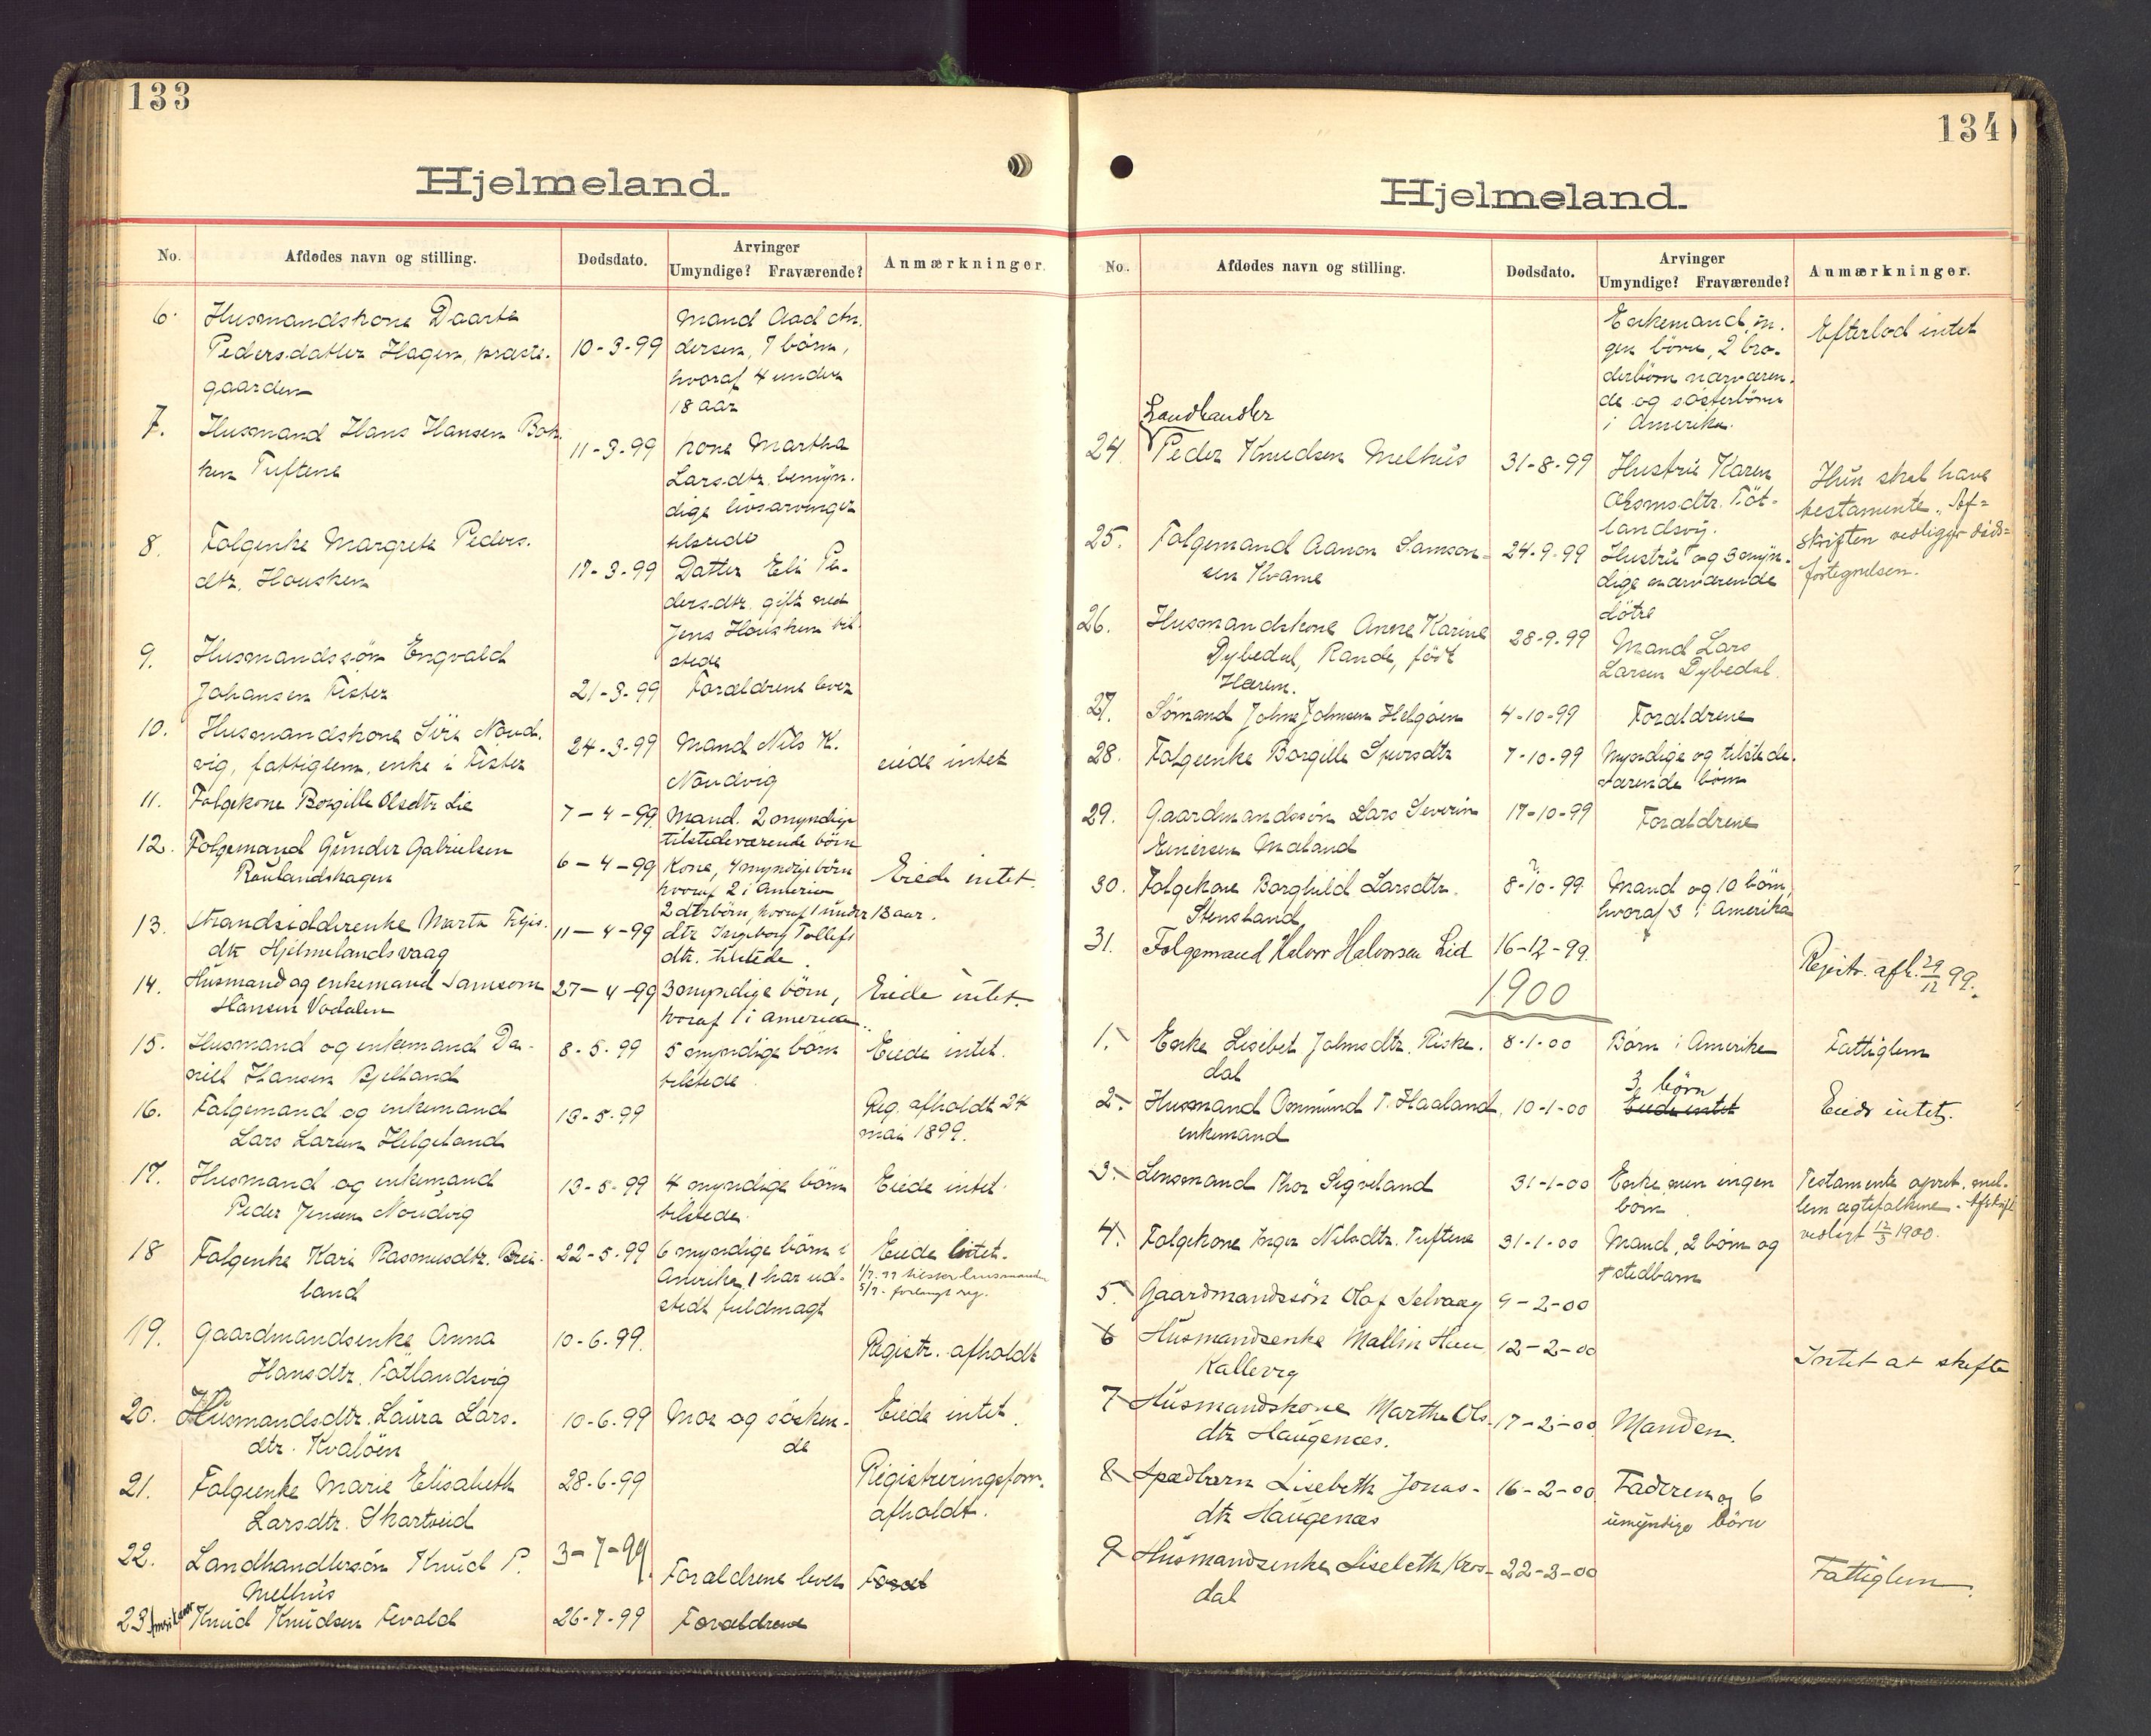 133
Hjelmeland.
No.
Afdødes navn og stilling.
Dødsdato.
Arvinger
Umyndige? Fraværende?
Anmærkninger.
6.
Husmandskone Daarte
Pedersdatter Hagen, præste-
gaarden
10-3-99
Mand Aad An-
dersen, 7 børn,
hvoraf 4 under
18 aar
7.
Husmand Hans Hansen Bak-
ken Tuftene
11-3-99
kone Martha
Larsdtr.
dige livsarvinger
tilstede
8.
Folgenke Margrete Peders-
dtr. Housken
17-3-99
Datter Eli Pe-
dersdtr. gift med
Jens Housken til-
stede
9.
Husmandssøn Engvald
Johansen Fister
21-3-99
Forældrene lever
10.
Husmandskone Siri Noud-
vig, fattiglem, enke i Fister
24-3-99
Mand Nils K.
Noudvig
eiede intet
11.
Folgekone Borgille Olsdtr Lie
7-4-99
Mand. 2 myndige
tilstedeværende børn
12.
Folgemand Gunder Gabrielsen
Raulandshagen
6-4-99
Kone, 4 myndige børn
hvoraf 2 i Amerika
2 dtrbørn, hvoraf 1 under 18 aar.
Eiede intet.
13.
Strandsidderenke Marta
dtr Hjelmelandsvaag
11-4-99
dtr Ingeborg Tollefs
dtr. tilstede.
14.
Husmand og enkemand Samson
Hansen Vadalen
27-4-99
3 myndige børn,
hvoraf 1 i America.
Eiede intet.
15.
Husmand og enkemand Da-
niel Hansen Bjelland
8-5-99
5 myndige børn
tilstede
Eiede intet.
16.
Folgemand og enkemand
Lars Larsen Helgeland
13-5-99
Reg. afholdt 24
mai 1899.
17.
Husmand og enkemand
Peder Jensen Noudvig
13-5-99
4 myndige børn
tilstede.
Eiede intet
18
Folgenke Kari Rasmusdtr. Brei-
land
22-5-99
6 myndige børn i
Amerika, 1 har ud-
stedt fuldmagt
Eiede intet.
forlangt reg.
19.
Gaardmandsenke Anna
Hansdtr. Fatlandsvig
10-6-99.
Registr. afholdt
20.
Husmandsdtr. Laura Lars-
dtr. Kvaløen
10-6-99
Mor og søsken-
de
Eiede intet.
21.
Folgeenke Marie Elisabeth
Larsdtr. Skartveid
28-6-99
Registreringsforr.
afholdt.
22.
Landhandlersøn Knud P.
Melhus
3-7-99.
Forældrene lever
Foræl
23.
Knud Knudsen Fevold
26-7-99
Forældrene
134
Hjelmeland.
No.
Afdødes navn og stilling.
Dødsdato.
Arvinger
Umyndige? Fraværende?
Anmærkninger.
Enkemand, in-
gen børn, 2 bro-
derbørn nærværen-
de og søsterbørn
i Amerika.
Efterlod intet
Landhandler
24.
Peder Knudsen Melhus
31-8-99
Hustru Karen
Asmsdtr. Føt-
landsvg.
Hun skal have
testamente. Af-
skriften vedligger døds-
fortegnelsen.
25.
Folgemand Aanon Samson-
sen Kvame
24-9-99
Hustru og 3 myn-
dige nærværende
døtre
26.
Husmandskone Anne Karine
Dybedal, Rande, født
Hæren.
28-9-99
Mand Lars
Larsen Dybedal.
27.
Sømand Johne Johnsen Helgøen
4-10-99
Forældrene
28.
Folgeenke Borgille Sjursdtr
7-10-99
Myndige og tilstede-
værende børn
29.
Gaardmandssøn Lars Severin
Einersen Maland
17-10-99
Forældrene
30.
Folgekone Borghild Larsdtr.
Stensland
8-10-99
Mand og 10 børn,
hvoraf 3 i Amerika
31.
Folgemand Halvor Halvorsen Lid
16-12-99.
Registr. afh. 29/12 99.
1900
1.
Enke Lisebet Johnsdtr. Riske-
dal
8-1-00
Børn i Amerika
Fattiglem
2.
Husmand Ommund T. Haaland,
enkemand
10-1-00
3 børn
Eiede intet
Eiede intet.
3.
Lensmand Thor Sigveland
31-1-00
Enke men ingen
børn
Testamente opret. mel-
lem ægtefolkene. Afskrift
vedlagt 12/3 1900.
4.
Folgekone Inger Nilsdtr. Tuftene
31-1-00
Mand, 2 børn og
1 stedbarn
5.
Gaardmandssøn Olaf Selvaag
9-2-00
6
Husmandsenke Mallin
Kallevig
12-2-00
Intet at skifte
7
Husmandskone Marthe Ols-
dtr Haugenæs.
17-2-00
Manden.
8
Spædbarn Lisebeth Jonas-
dtr Haugenæs
16-2-00
Faderen og 6
umyndige børn
9
Husmandsenke Lisebeth Kros-
dal
22-2-00
Fattiglem.